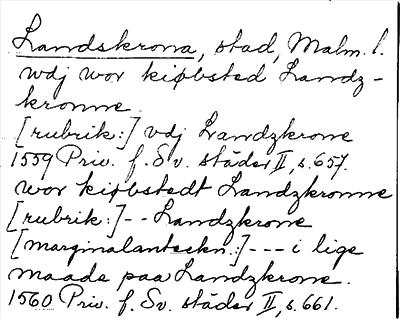 Landskrona, stad, Malm. l.
wdj wor kiøbsted Landz-
kronne
[rubrik:] vdj Landzkrone
1559 Priv. f. Sv. städer II, s. 657.
wor kiøbstedt Landzkronne
[rubrik:] -- Landzkrone
[marginalanteckn.:] --- i lige
maade paa Landzkrone.
1560 Priv. f. Sv. städer II, s. 661.